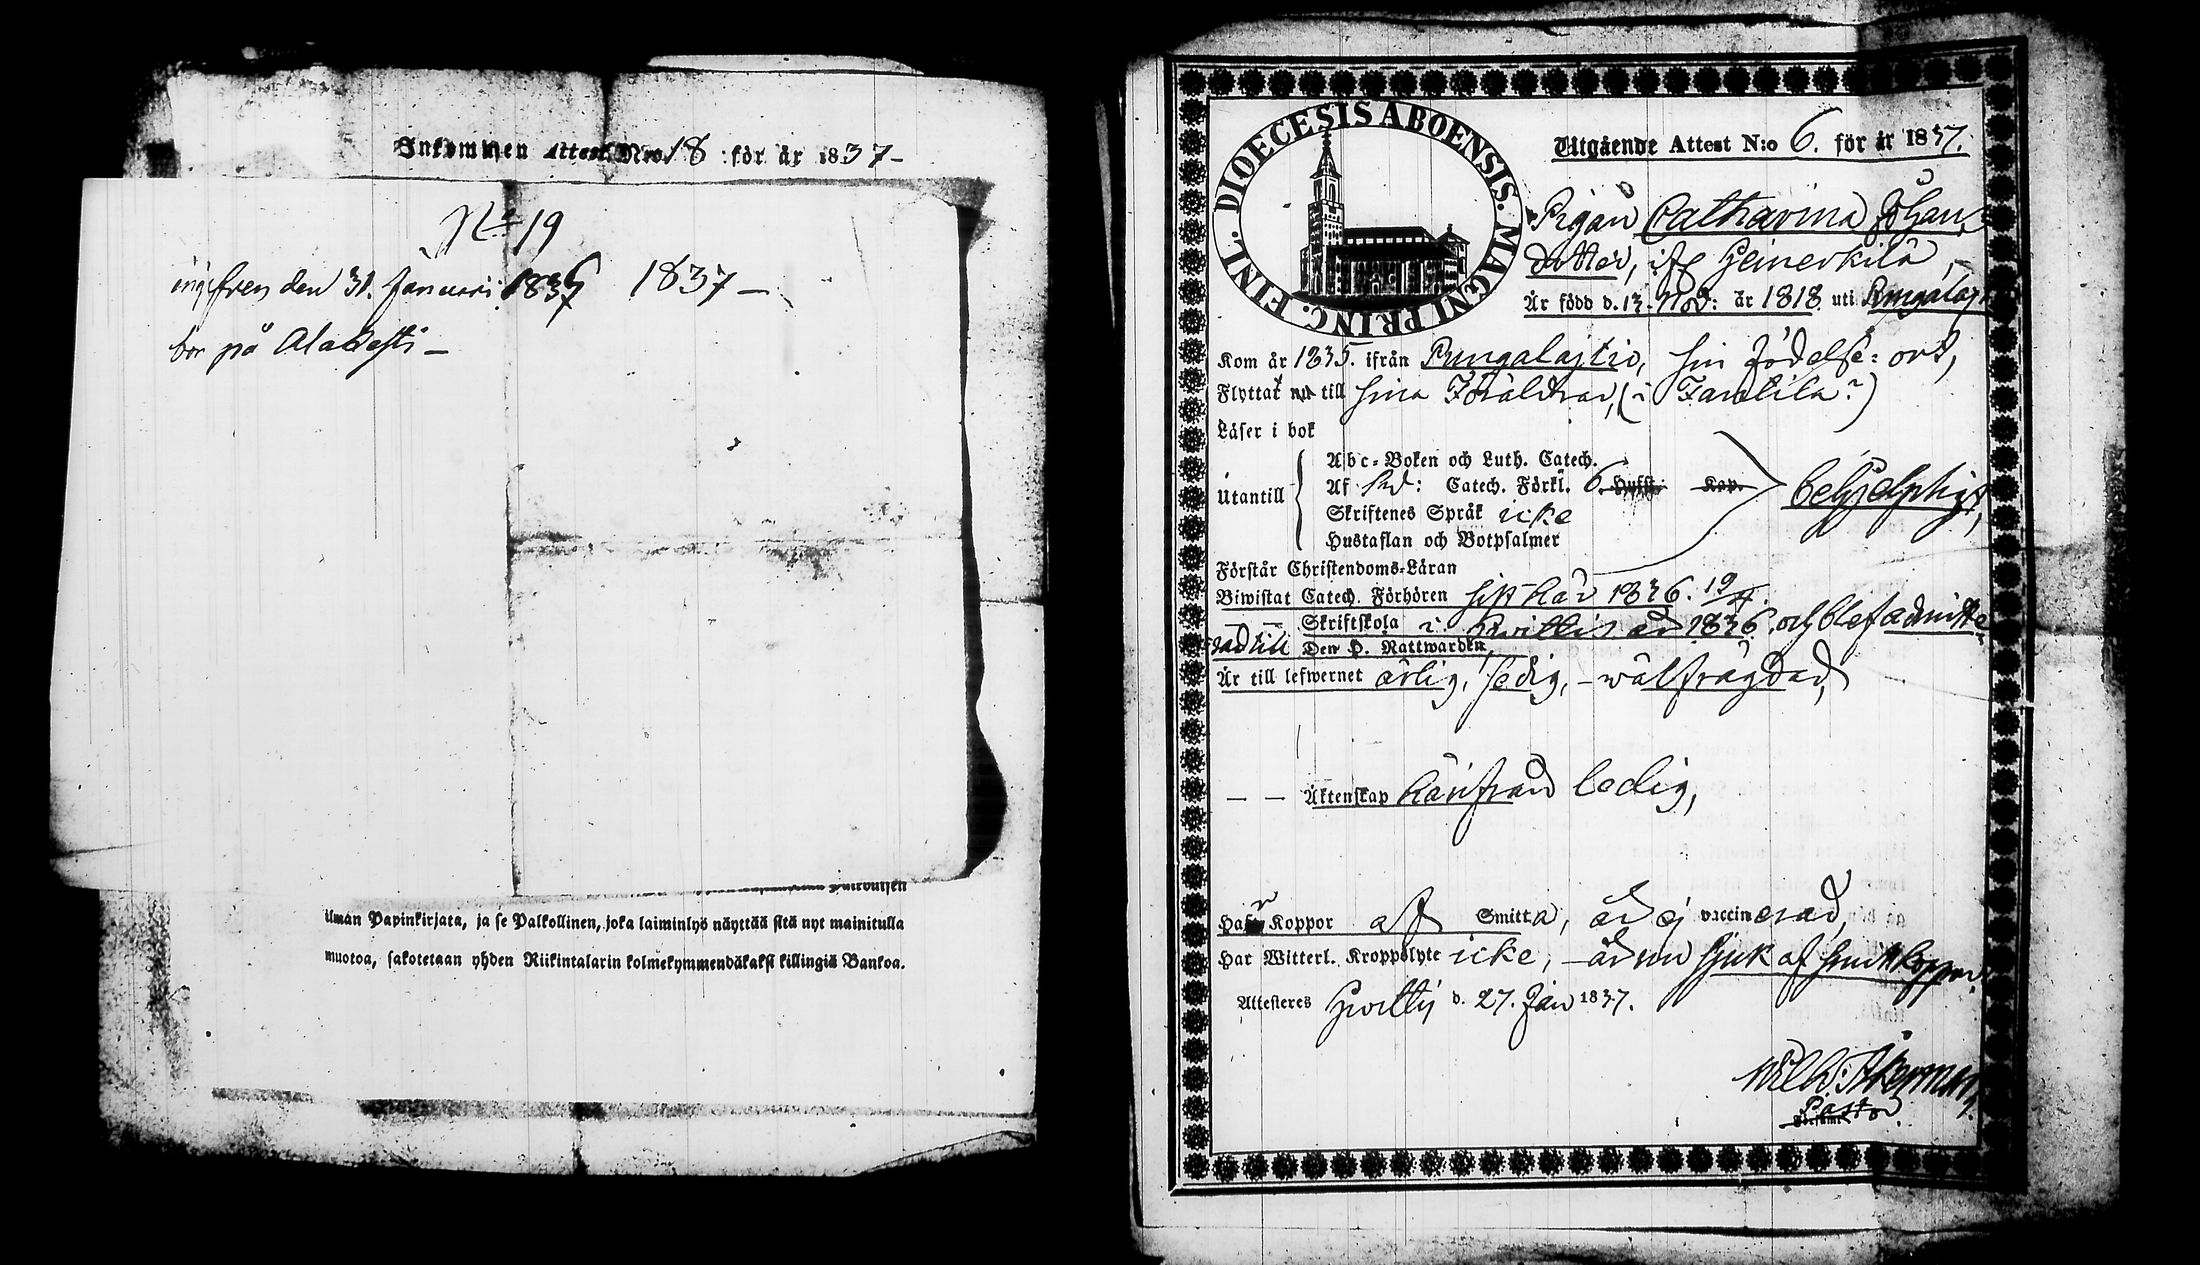 Inkommen Attest Nro 18 för år 1837 -
No 19
den 31. Januari 1837 1837 -
bor på
ilman Papinkirjata, ja se Palkollinen, joka laiminlyö näyttää sitä nyt mainitulla
muotoa, sakotetaan yhden Riikintalarin kolmekymmendäkaksi killingiä Bankoa.
DIOECESIS ABOENSIS. MAGNI PRINC. FINL.
Utgående Attest N:o 6. för år 1837.
Pigan Catharina Johans
dotter, ifr
Är född d. 13. Nov: år 1818 uti
Kom år 1835. ifrån Pungalajtio, sin födelse: ort,
Flyttat nu till sina Föräldrar, (i
Läser i bok
Utantill
Abc-Boken och Luth. Catech.
Af Catech. Förkl. 6. Hufst. Kap.
Skriftenes Språk icke
Hustaflan och Botpsalmer
behjelpligt,
Förstår Christendoms-Läran
Biwistat Catech. Förhören sist här 1836.
Skriftskola i år 1836. och blef admitte-
rad till Den H. Nattwarden
Är till lefwernet ärlig, sedig, - wälfrägdad,
— — Äktenskap härifrån ledig,
Haft Koppor af Smitta, är ej vaccinerad,
Har Witterl. Kroppslyte icke, - är nu sjuk af smittkoppor.
Attesteres d. 27. Jan 1837.
Wilh: Åkerman,
Pastor.